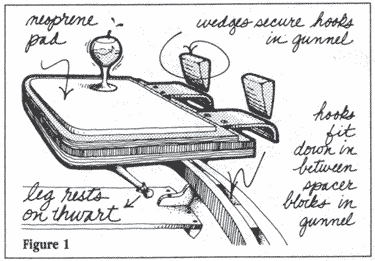 neoprene
pad
wedges secure hooks
in gunnel
hooks
fit
down in
between
spacer
blocks in
gunnel
leg rests
on thwart
Figure 1